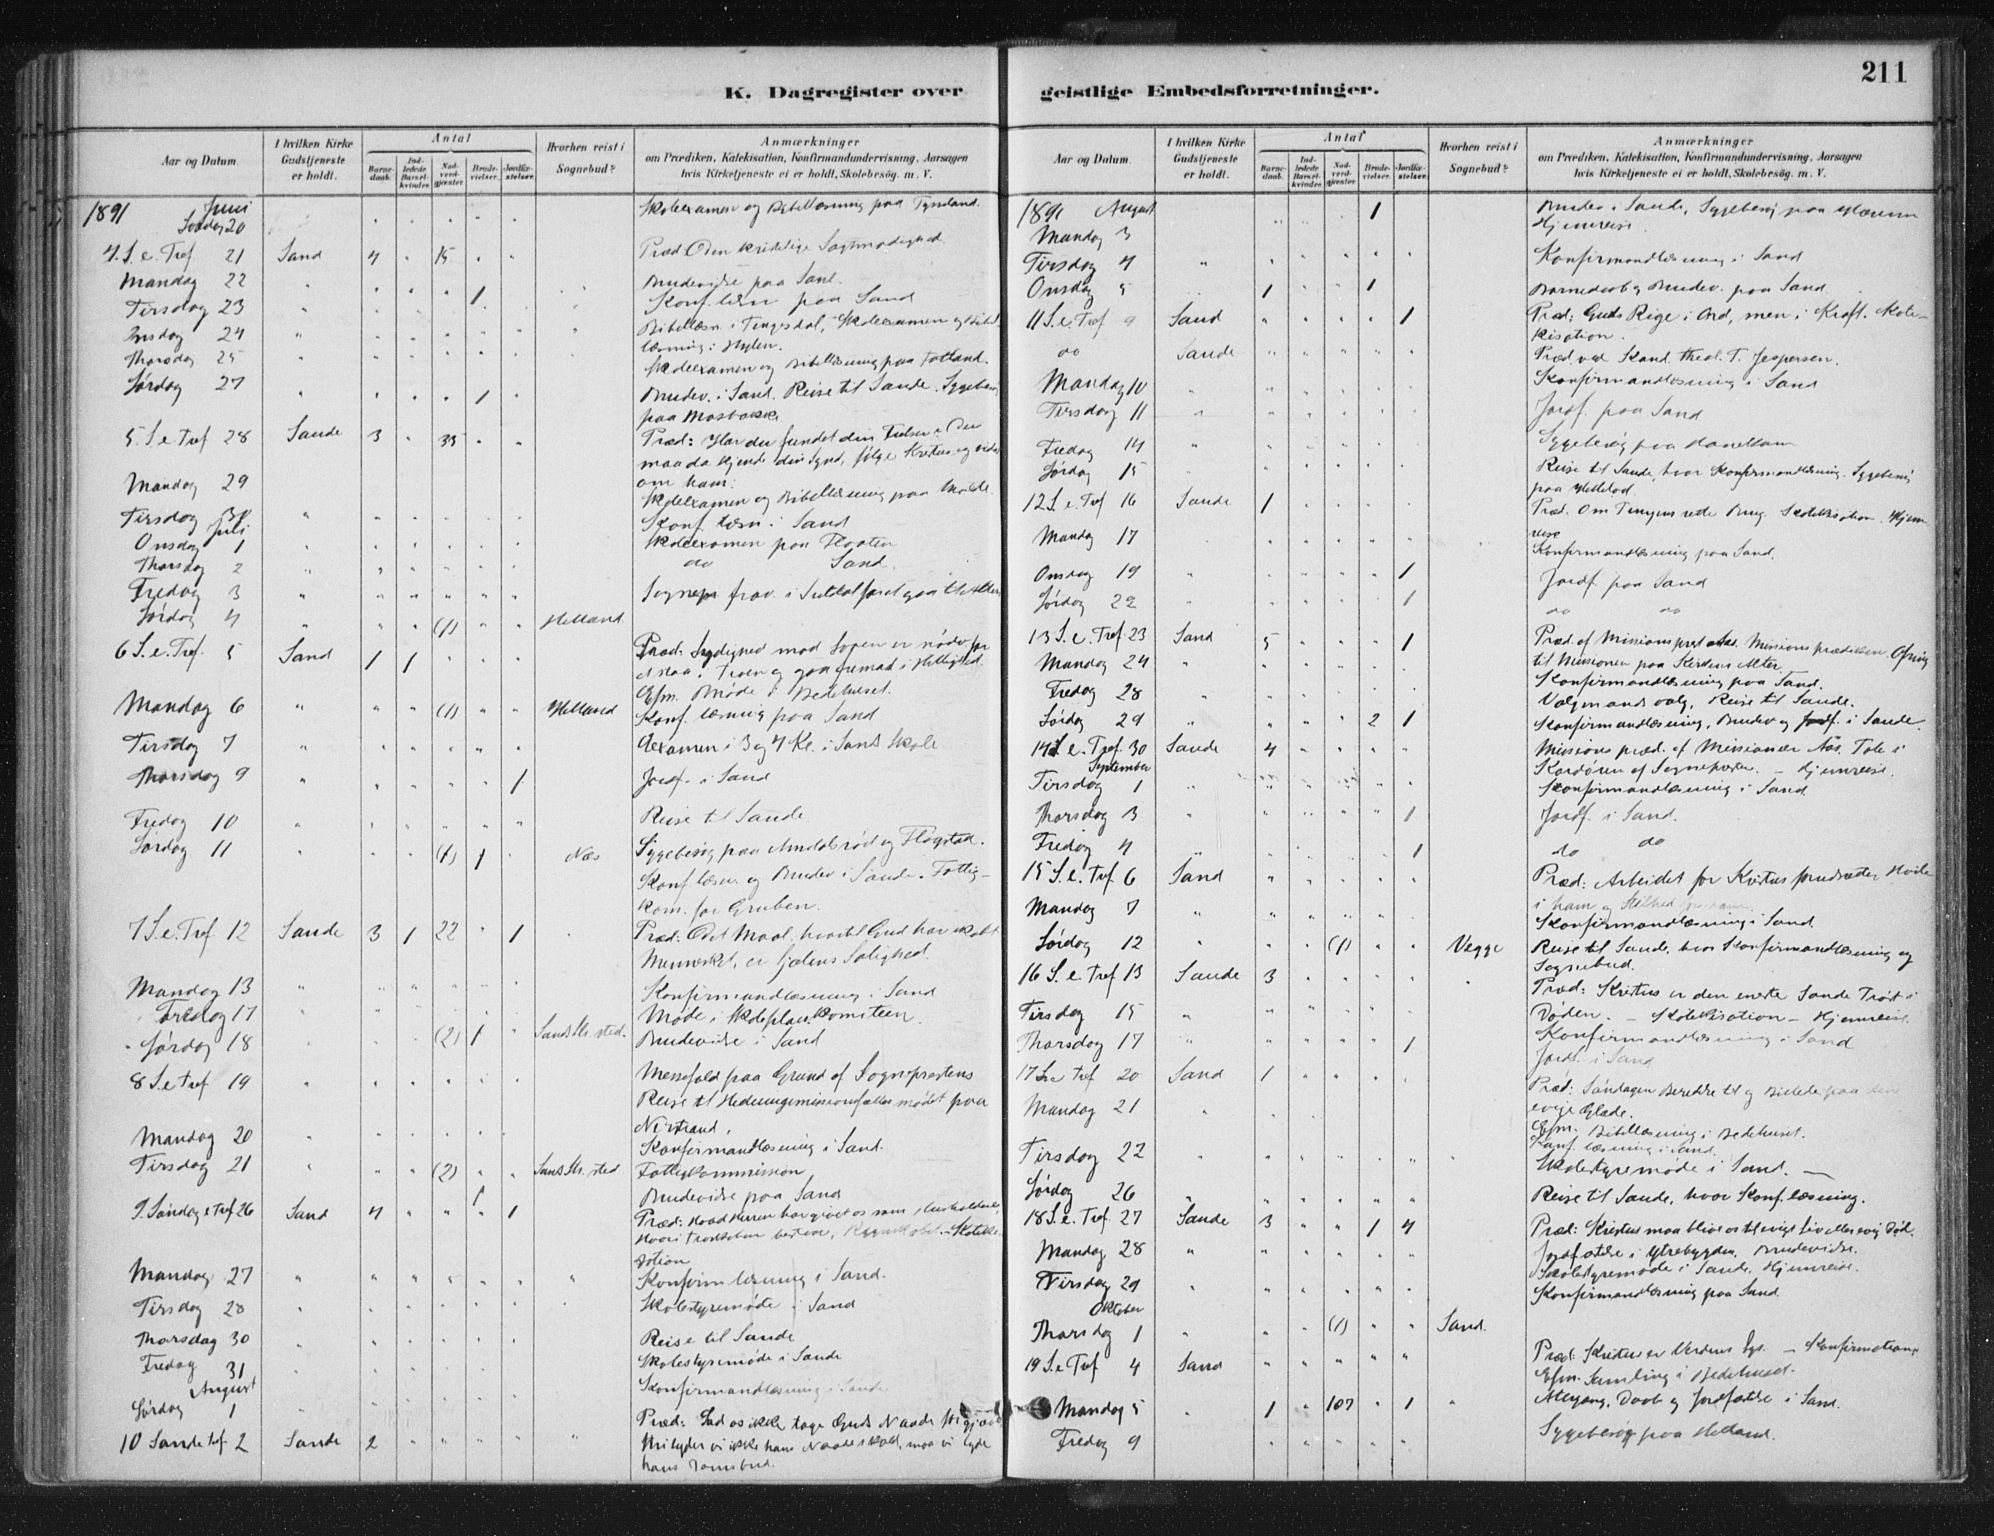 211
K. Dagregister over
Aar og Datum
I hvilken Kirke Gudstjeneste er holdt.
Antal
Barnedaab.
Indledede Barselkvinder.
Nadverdgjester
Brudevielser.
Jordfæstelser.
Hvorhen reist i Sognebud?
Anmærkninger
om Prædiken, Katekisation, Konfirmandundervisning, Aarsagen
hvis Kirketjeneste ei er holdt, Skolebesøg. m. V.
1891 Juni
Lørdag 20 Skoleexamen og Bibellæsning paa
4. S. e. Tref 21 Sand 4 15 Præd: Den kristelige Sagtmodighed.
Mandag 22 1 Brudevielse paa Sand.
Tirsdag 23 Konf. læsn paa Sand
Onsdag 24 Bibellæsn i Tengesdal, Skoleexamen og Bibel
læsning i Hylen.
Thorsdag 25 Skoleexamen og Bibellæsning paa
Lørdag 27 1 Brudev. i Sand. Reise til Sande. Sygebesøg
paa
5. S. e. Tref 28 Sande 3 35 Præd: Har du fundet din Frelser? Du
maa da kjende din Synd, følge Kristus og vidne
om ham.
Mandag 29 Skoleexamen og Bibellæsning paa
Tirsdag 30 Konf læsn. i Sand
Juli
Onsdag 1 Skoleexamen paa
Thorsdag 2 do Sand.
Fredag 3
Lørdag 4 (1) Helland
6 S. e. Tref. 5 Sand 1 1 Præd: Lydighed mod Loven er nødv for
at staa i Troen og gaa fremad i Hellighed.
Efm. Møde i Bedehuset.
Mandag 6 (1) Helland Konf. læsning paa Sand
Tirsdag 7 examen i 3 og 4 Kl. i Sands Skole
Thorsdag 9 1 Jordf. i Sand
Fredag 10 Reise til Sande
Lørdag 11 (1) 1 Næs Sygebesøg paa og Fløgstad.
Konf læsn og Brudev i Sande. Fattig-
kom. for Gruben.
7 S. e. Tref 12 Sande 3 1 22 1 Præd: Det Maal, hvortil Gud har skabt
Mennesket, er Sjælens Salighed.
Mandag 13 Konfirmandlæsning i Sand
Fredag 17 Møde i Skoleplankomiteen.
Lørdag 18 (2) 1 Brudevielse i Sand
8 S. e Tref 19 Messefald paa Grund af Sogneprestens
Reise til Hedningemissionsfællesmødet paa
Nerstrand.
Mandag 20 Konfirmandlæsning i Sand.
Tirsdag 21 (2) Fattigkommission
1 Brudevielse paa Sand
9. Søndag e Tref 26 Sand 4 1 Præd: Hvad Herren har givet os som Husholdere,
Mandag 27 Konfirm læsning i Sand.
Tirsdag 28 Skolestyremøde i Sand
Thorsdag 30 Reise til Sande
Fredag 31 Skolestyremøde i Sande
August Konfirmandlæsning i Sande
Lørdag 1
10 Sandetref 2 Sande 2 Præd: Lad os ikke tage Guds Naade
lyder vi ikke hans Naadeskald, maa vi lyde
hans Domsbud.
geistlige Embedsforretninger.
Aar og Datum.
I hvilken Kirke Gudstjeneste er holdt.
Antal
Barnedaab.
Indledede Barselkvinder.
Nadverdgjester
Brudevielser.
Jordfæstelser.
Hvorhen reist i Sognebud?
Anmærkninger
om Prædiken, Katekisation, Konfirmandundervisning, Aarsagen
hvis Kirketjeneste ei er holdt, Skolebesøg. m. V.
1891 August
Mandag 3 1 Brudev. i Sande, Sygebesøg paa
Hjemreise.
Tirsdag 4 Konfirmandlæsning i Sand
Onsdag 5 1 1 Barnedaab og Brudev. paa Sand.
11 S. e. Tref 9 Sand 1 Præd: Guds Rige i Ord, men i Kraft. Kate-
kisation.
do Sande Præd. ved Kand. theol. T. Jespersen.
Mandag 10 Konfirmandlæsning i Sand
Tirsdag 11 Jordf. paa Sand
Fredag 14 Sygebesøg paa
Lørdag 15 Reise til Sande, hvor Konfirmandlæsning. Sygebesøg
paa
12 S. e Tref 16 Sande 1 Præd. Om Tungens rette Brug. Katekisation. Hjem
reise
Mandag 17 Konfirmandlæsning paa Sand.
Onsdag 19 1 Jordf. paa Sand
Lørdag 22 1 do do
13 S. e. Tref 23 Sand 5 1 Præd. af Missionsprest Aas. Missionsprædiken. Ofring
til Missionen paa Herrens Alter.
Mandag 24 Konfirmandlæsning paa Sand.
Fredag 28 Valgmandsvalg. Reise til Sande.
Lørdag 29 2 1 Konfirmandlæsning, Brudev og Jordf. i Sande.
14 S. e. Tref 30 Sande 4 Missionspræd. af Missionær Aas. Tale i
Kordøren af Sognepresten. – Hjemreise.
September
Tirsdag 1 Konfirmandlæsning i Sand
Thorsdag 3 1 Jordf. i Sand.
Fredag 4 1 do do
15 S. e. Tref. 6 Sand Præd: Arbeidet for Kristus forudsætter Hvile
i ham og Stilhed
Mandag 7 Konfirmandlæsning i Sand.
Lørdag 12 (1) Vegge Reise til Sande, hvor Konfirmandlæsning og
Sognebud.
16 S. e. Tref 13 Sande 3 Præd: Kristus er den eneste Sande Trøst i
Døden. – Katekisation – Hjemreise.
Tirsdag 15 Konfirmandlæsning i Sand
Thorsdag 17 1 Jordf. i Sand
17 S. e Tref 20 Sand 1 Præd: Søndagen Berettet til og Billede paa den
evige Glæde.
Efm. Bibellæsning i Bedehuset.
Mandag 21 Konf. læsning i Sand.
Tirsdag 22 Skolestyremøde i Sand. –
Lørdag 26 Reise til Sande, hvor Konf. læsning.
18 S. e. Tref. 27 Sande 3 1 4 Præd: Kristus maa blive os til evigt Liv eller evig Død.
Jordfæstelse i Ytrebygden, Brudevielse.
Mandag 28 Skolestyremøde i Sande. Hjemreise.
Tirsdag 29 Konfirmandlæsning paa Sand
Oktober
Thorsdag 1 (1) Sand.
19 S. e Tref 4 Sand Præd: Kristus er Verdens Lys. – Konfirmation
Efm. Samling i Bedehuset.
Mandag 5 1 107 1 Altergang, Daab og Jordfæstelse i Sand.
Fredag 9 Sygebesøg paa Helland.